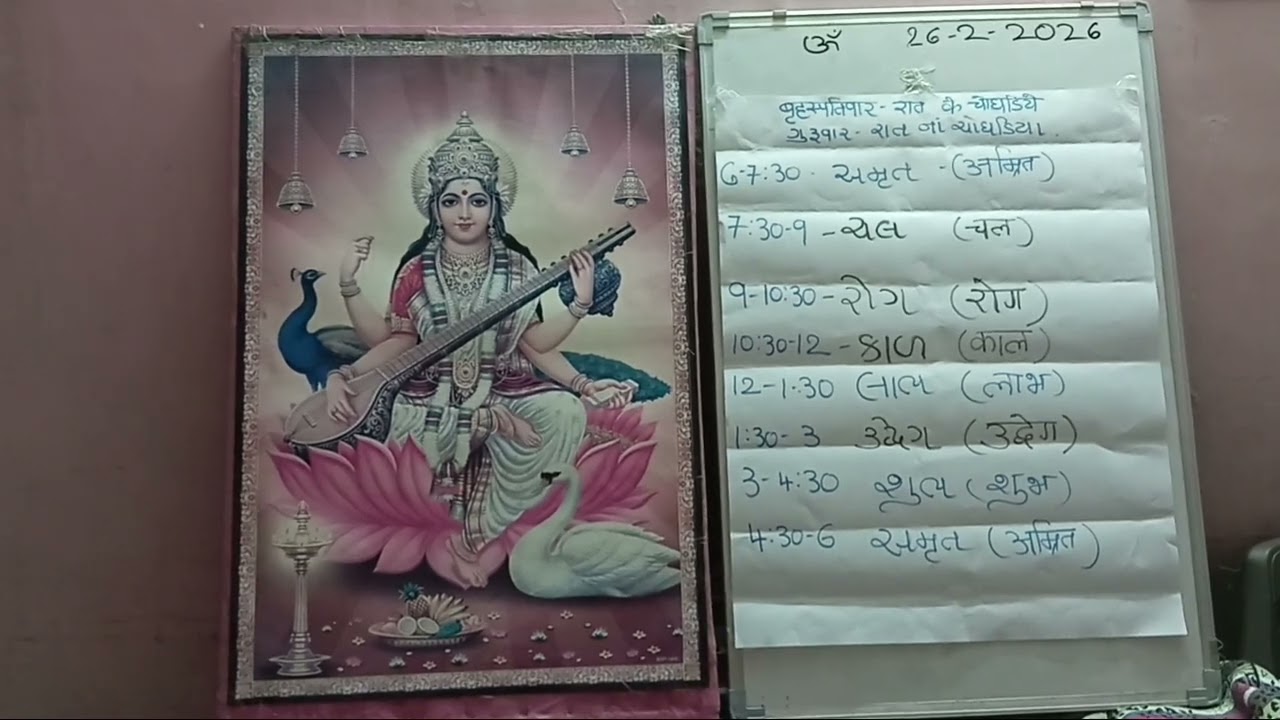 ॐ 26-2-2026
बृहस्पतिवार - रात के चोघडिये
ગુરૂવાર - રાત નાં ચોઘડિયા.
6-7:30 - અમૃત - (अम्रित)
7:30-9 - ચલ (चल)
9-10:30 - રોગ (रोग)
10:30-12 - કાળ (काल)
12-1:30 લાભ (लाभ)
1:30-3 ઉદ્વેગ (उद्वेग)
3-4:30 શુભ (शुभ)
4:30-6 અમૃત (अम्रित)